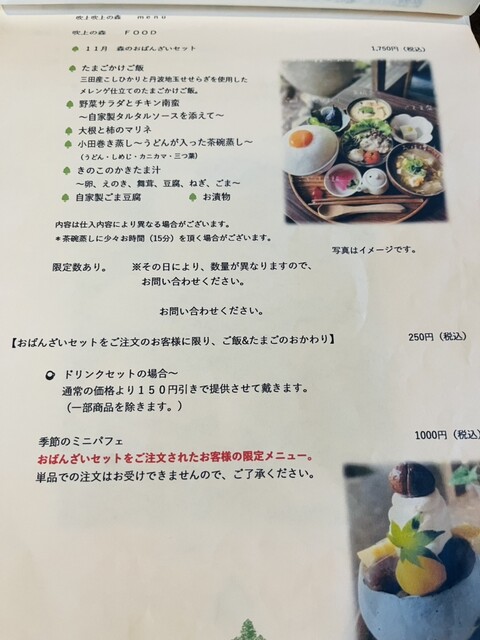 吹上吹上の森　ｍｅｎｕ
吹上の森　ＦＯＯＤ
１１月　森のおばんざいセット　1,750円（税込）
たまごかけご飯
三田産こしひかりと丹波地玉せせらぎを使用した
メレンゲ仕立てのたまごかけご飯。
野菜サラダとチキン南蛮
～自家製タルタルソースを添えて～
大根と柿のマリネ
小田巻き蒸し～うどんが入った茶碗蒸し～
（うどん・しめじ・カニカマ・三つ葉）
きのこのかきたま汁
～卵、えのき、舞茸、豆腐、ねぎ、ごま～
自家製ごま豆腐　お漬物
内容は仕入内容により異なる場合がございます。
＊茶碗蒸しに少々お時間（15分）を頂く場合がございます。
写真はイメージです。
限定数あり。　※その日により、数量が異なりますので、
お問い合わせください。
お問い合わせください。
【おばんざいセットをご注文のお客様に限り、ご飯&たまごのおかわり】　250円（税込）
ドリンクセットの場合～
通常の価格より１５０円引きで提供させて戴きます。
（一部商品を除きます。）
季節のミニパフェ　1000円（税込）
おばんざいセットをご注文されたお客様の限定メニュー。
単品での注文はお受けできませんので、ご了承ください。